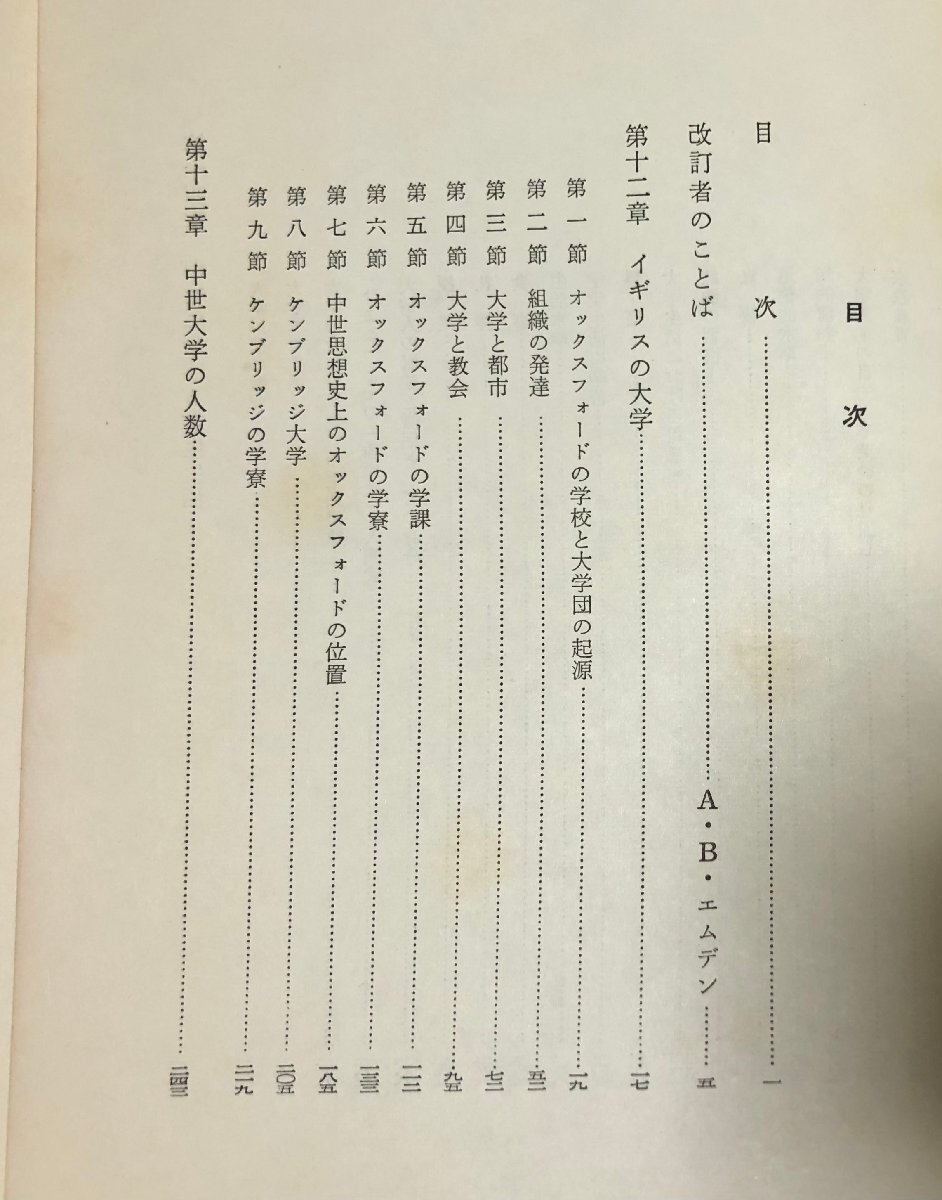 目次
目次……………………一
改訂者のことば……………………A・B・エムデン…………五
第十二章　イギリスの大学……………………一七
第一節　オックスフォードの学校と大学団の起源……………………一九
第二節　組織の発達……………………五二
第三節　大学と都市……………………七二
第四節　大学と教会……………………九五
第五節　オックスフォードの学課……………………一一二
第六節　オックスフォードの学寮……………………一三三
第七節　中世思想史上のオックスフォードの位置……………………一八五
第八節　ケンブリッジ大学……………………二〇五
第九節　ケンブリッジの学寮……………………二一九
第十三章　中世大学の人数……………………二四三